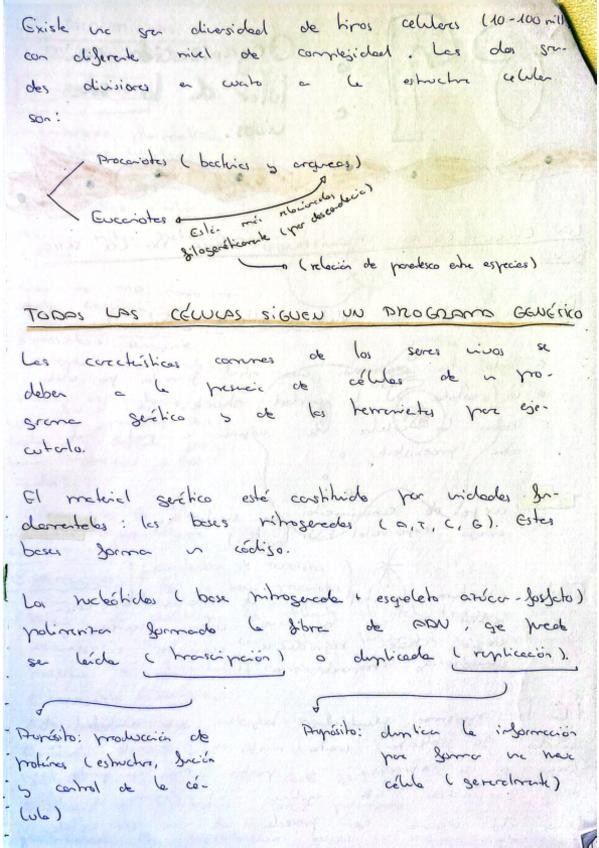 Existe una gran diversidad de tipos celulares (10-100 mill
con diferente nivel de complejidad. Las dos gran-
des divisiones en cuanto a la estructura celular
son:
Procariotas (bacterias y arqueas)
Eucariotas
Están más relacionadas
filogenéticamente (por descendencia)
(relación de parentesco entre especies)
TODAS LAS CÉLULAS SIGUEN UN PROGRAMA GENÉTICO
Las características comunes de los seres vivos se
deben a la presencia de células de un pro-
grama genético y de las herramientas para eje-
cutarlo.
El material genético está constituido por unidades fun-
damentales: las bases nitrogenadas (A, T, C, G). Estas
bases forman un código.
Los nucleótidos (base nitrogenada + esqueleto azúcar-fosfato)
polimerizan formando la fibra de ADN, que puede
ser leída (transcripción) o duplicada (replicación).
Propósito: producción de
proteínas (estructura, función
y control de la cé-
lula)
Propósito: duplica la información
para formar una nueva
célula (generalmente)